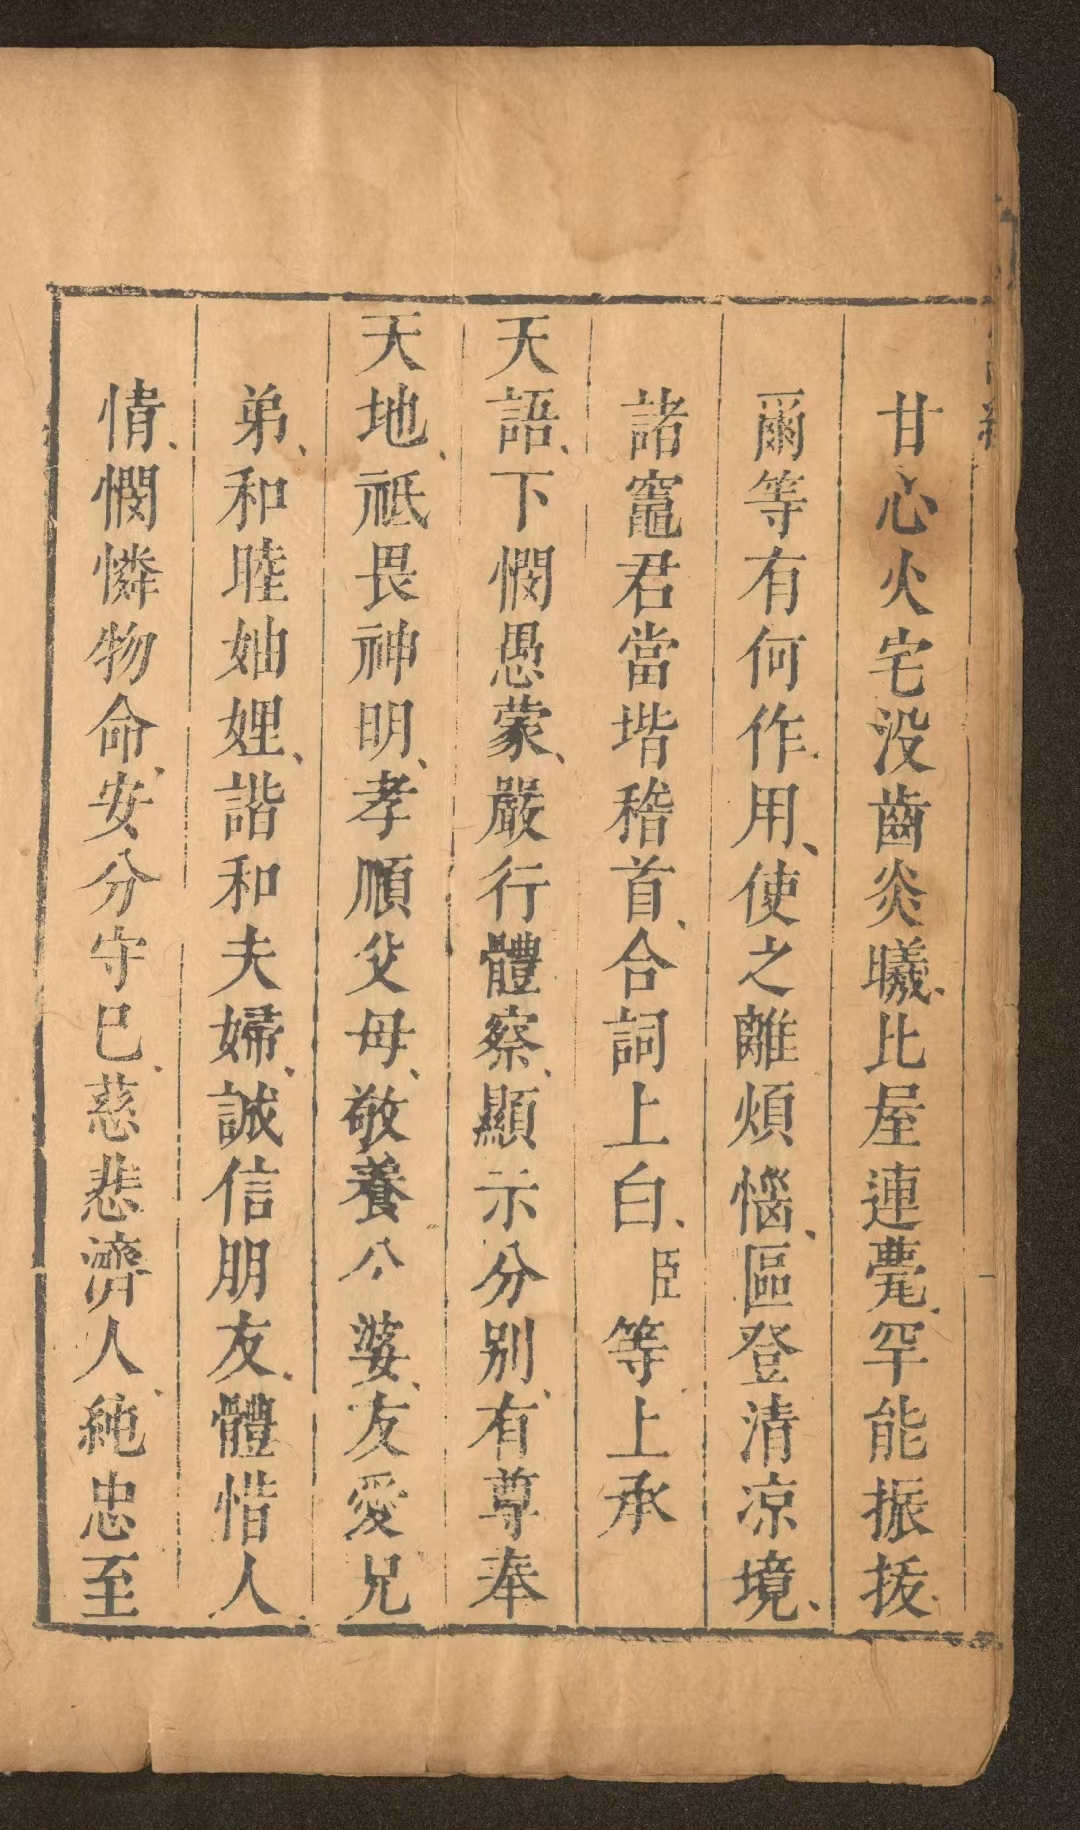 甘心火宅没齒炎曦、比屋連甍、罕能振拔、
爾等有何作用、使之離煩惱、區登清凉境、
諸竈君當堦稽首、合詞上白、臣等、上承
天語、下憫愚蒙、嚴行體察、顯示分别、有尊奉
天地、祇畏神明、孝順父母、敬養公婆、友愛兄
弟、和睦妯娌、諧和夫婦、誠信朋友、體惜人
情、憫憐物命、安分守已、慈悲濟人、純忠至